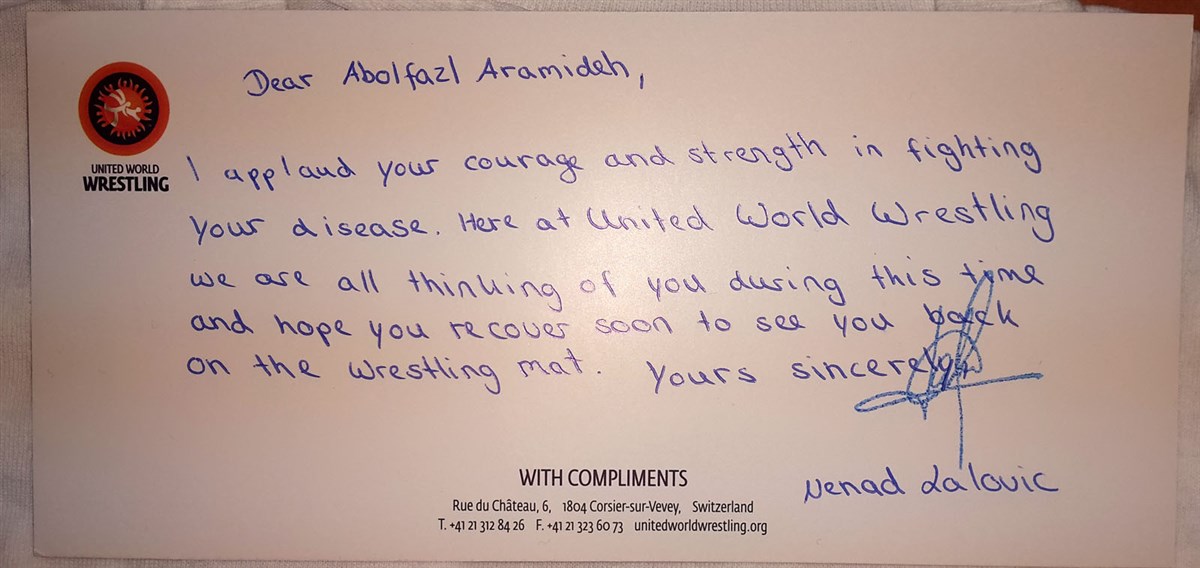 Dear Abolfazl Aramideh,
UNITED WORLD
WRESTLING
I applaud your courage and strength in fighting
your disease. Here at United World Wrestling
we are all thinking of you during this time
and hope you recover soon to see you back
on the wrestling mat. Yours sincerely
Nenad Lalovic
WITH COMPLIMENTS
Rue du Château, 6, 1804 Corsier-sur-Vevey, Switzerland
T. +41 21 312 84 26 F. +41 21 323 60 73 unitedworldwrestling.org